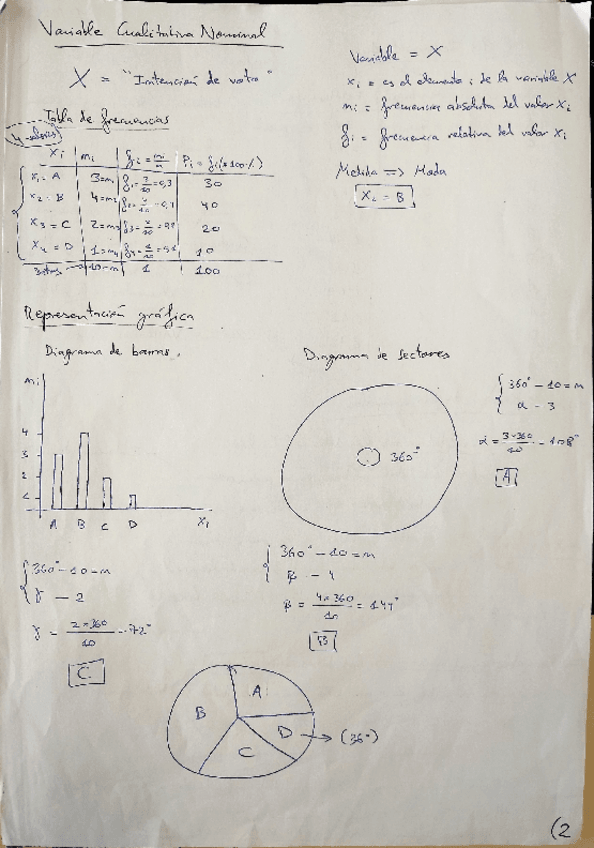 Variable Cualitativa Nominal
X = "Intención de voto"
Variable = X
xi = es el elemento i de la variable X
ni = frecuencia absoluta del valor xi
fi = frecuencia relativa del valor xi
Medida => Moda
x2 = B
Tabla de frecuencias
4 valores
xi ni fi = ni/n Pi = fi(*100%)
x1 = A 3=n1 f1=3/10=0,3 30
x2 = B 4=n2 f2=4/10=0,4 40
x3 = C 2=n3 20
x4 = D 1=n4 f4=1/10=0,1 10
10=n 1 100
Representación gráfica
Diagrama de barras.
ni
4
3
2
1
A B C D xi
Diagrama de sectores
360°
360° - 10 = n
α - 3
α = 3*360/10 = 108°
A
360° - 10 = n
β - 4
β = 4*360/10 = 144°
B
360° - 10 = n
γ - 2
γ = 2*360/10 = 72°
C
A
B
C
D → (36°)
(2